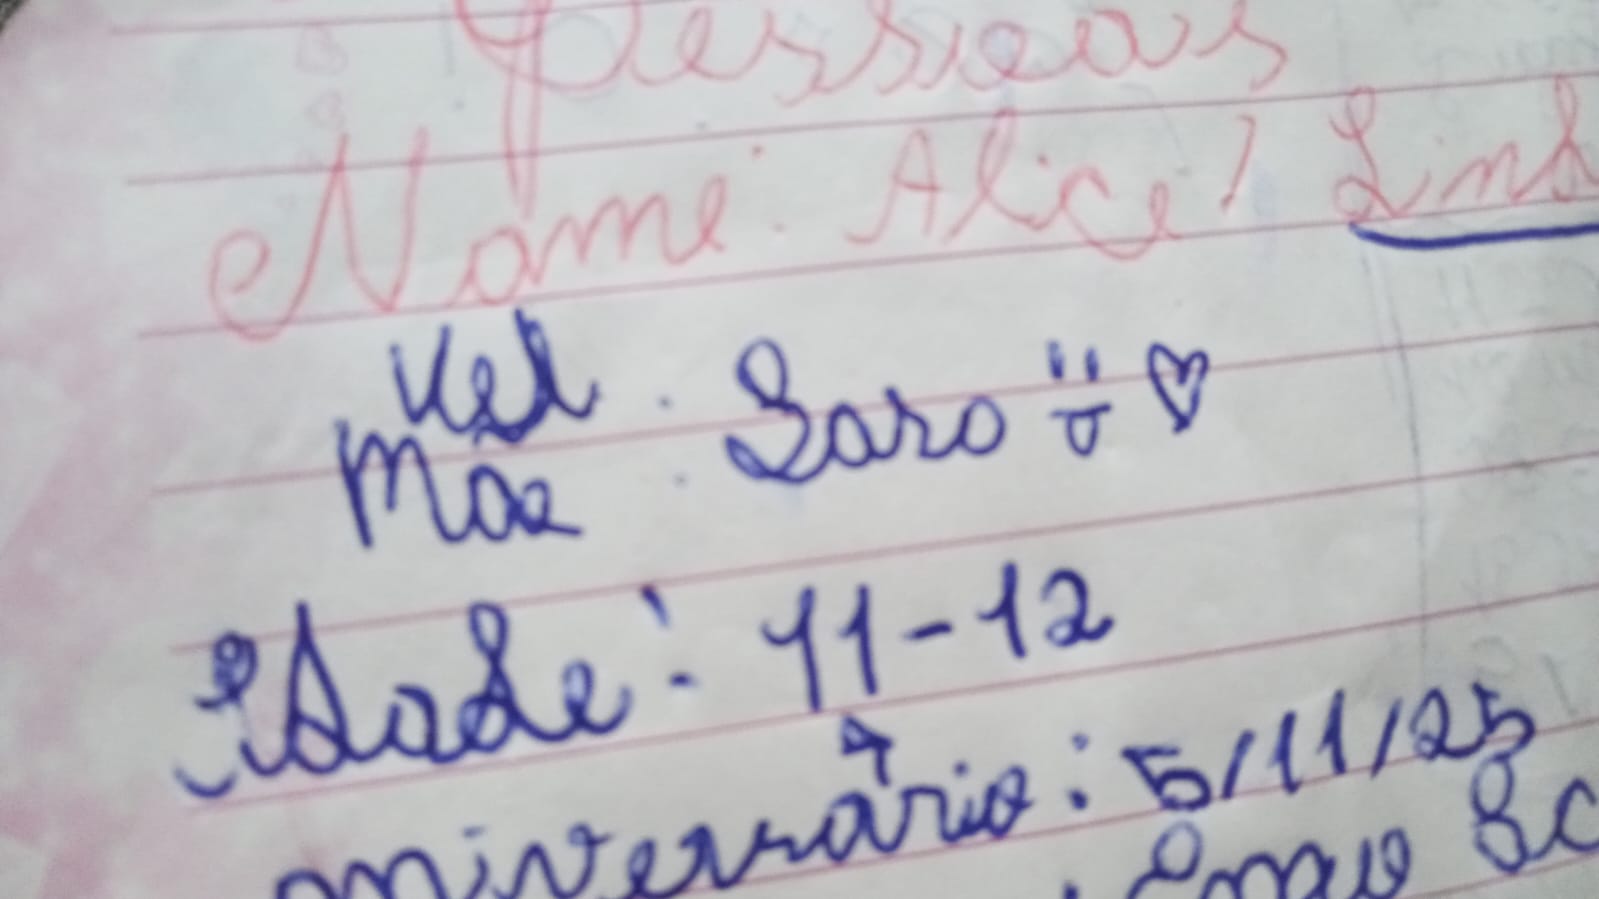 Pessoas
Nome: Alice!
Mãe : Sara
Idade: 11-12
aniversário: 5/11/25